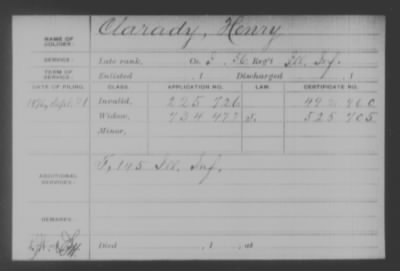 NAME OF SOLDIER: Clarady, Henry
SERVICE: Late rank, Co. Reg't Ill. Inf.
TERM OF SERVICE: Enlisted , 1 Discharged , 1
DATE OF FILING. CLASS. APPLICATION NO. LAW. CERTIFICATE NO.
1876, Sept. 21 Invalid, 225 726
Widow, 734 477 525 705
Minor,
ADDITIONAL SERVICES: F, 145 Ill. Inf.
REMARKS:
Died , 1 , at